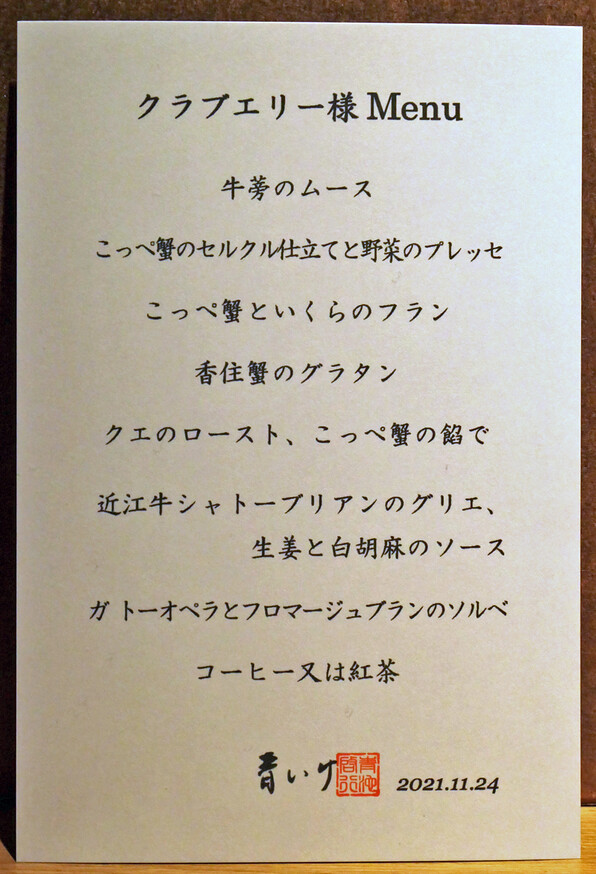 クラブエリー様 Menu
牛蒡のムース
こっぺ蟹のセルクル仕立てと野菜のプレッセ
こっぺ蟹といくらのフラン
香住蟹のグラタン
クエのロースト、こっぺ蟹の餡で
近江牛シャトーブリアンのグリエ、
生姜と白胡麻のソース
ガトーオペラとフロマージュブランのソルベ
コーヒー又は紅茶
青いけ
2021.11.24